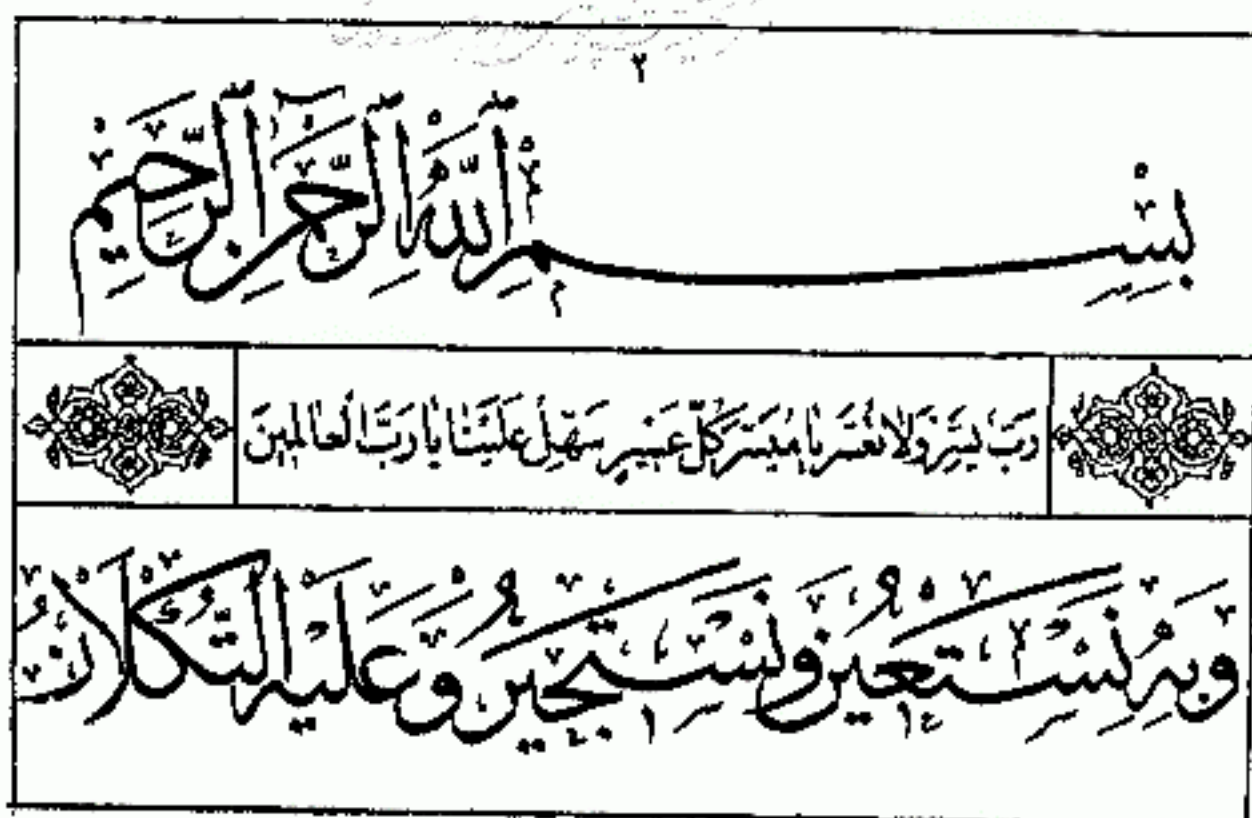 ٢
بِسْمِ اللّٰهِ الرَّحْمٰنِ الرَّحِيْمِ
رَبِّ يَسِّرْ وَلَا تُعَسِّرْ يَا مُيَسِّرَ كُلِّ عَسِيْرٍ سَهِّلْ عَلَيْنَا يَا رَبَّ الْعَالَمِيْنَ
وَبِهٖ نَسْتَعِيْنُ وَنَسْتَجِيْرُ وَعَلَيْهِ التُّكْلَانُ